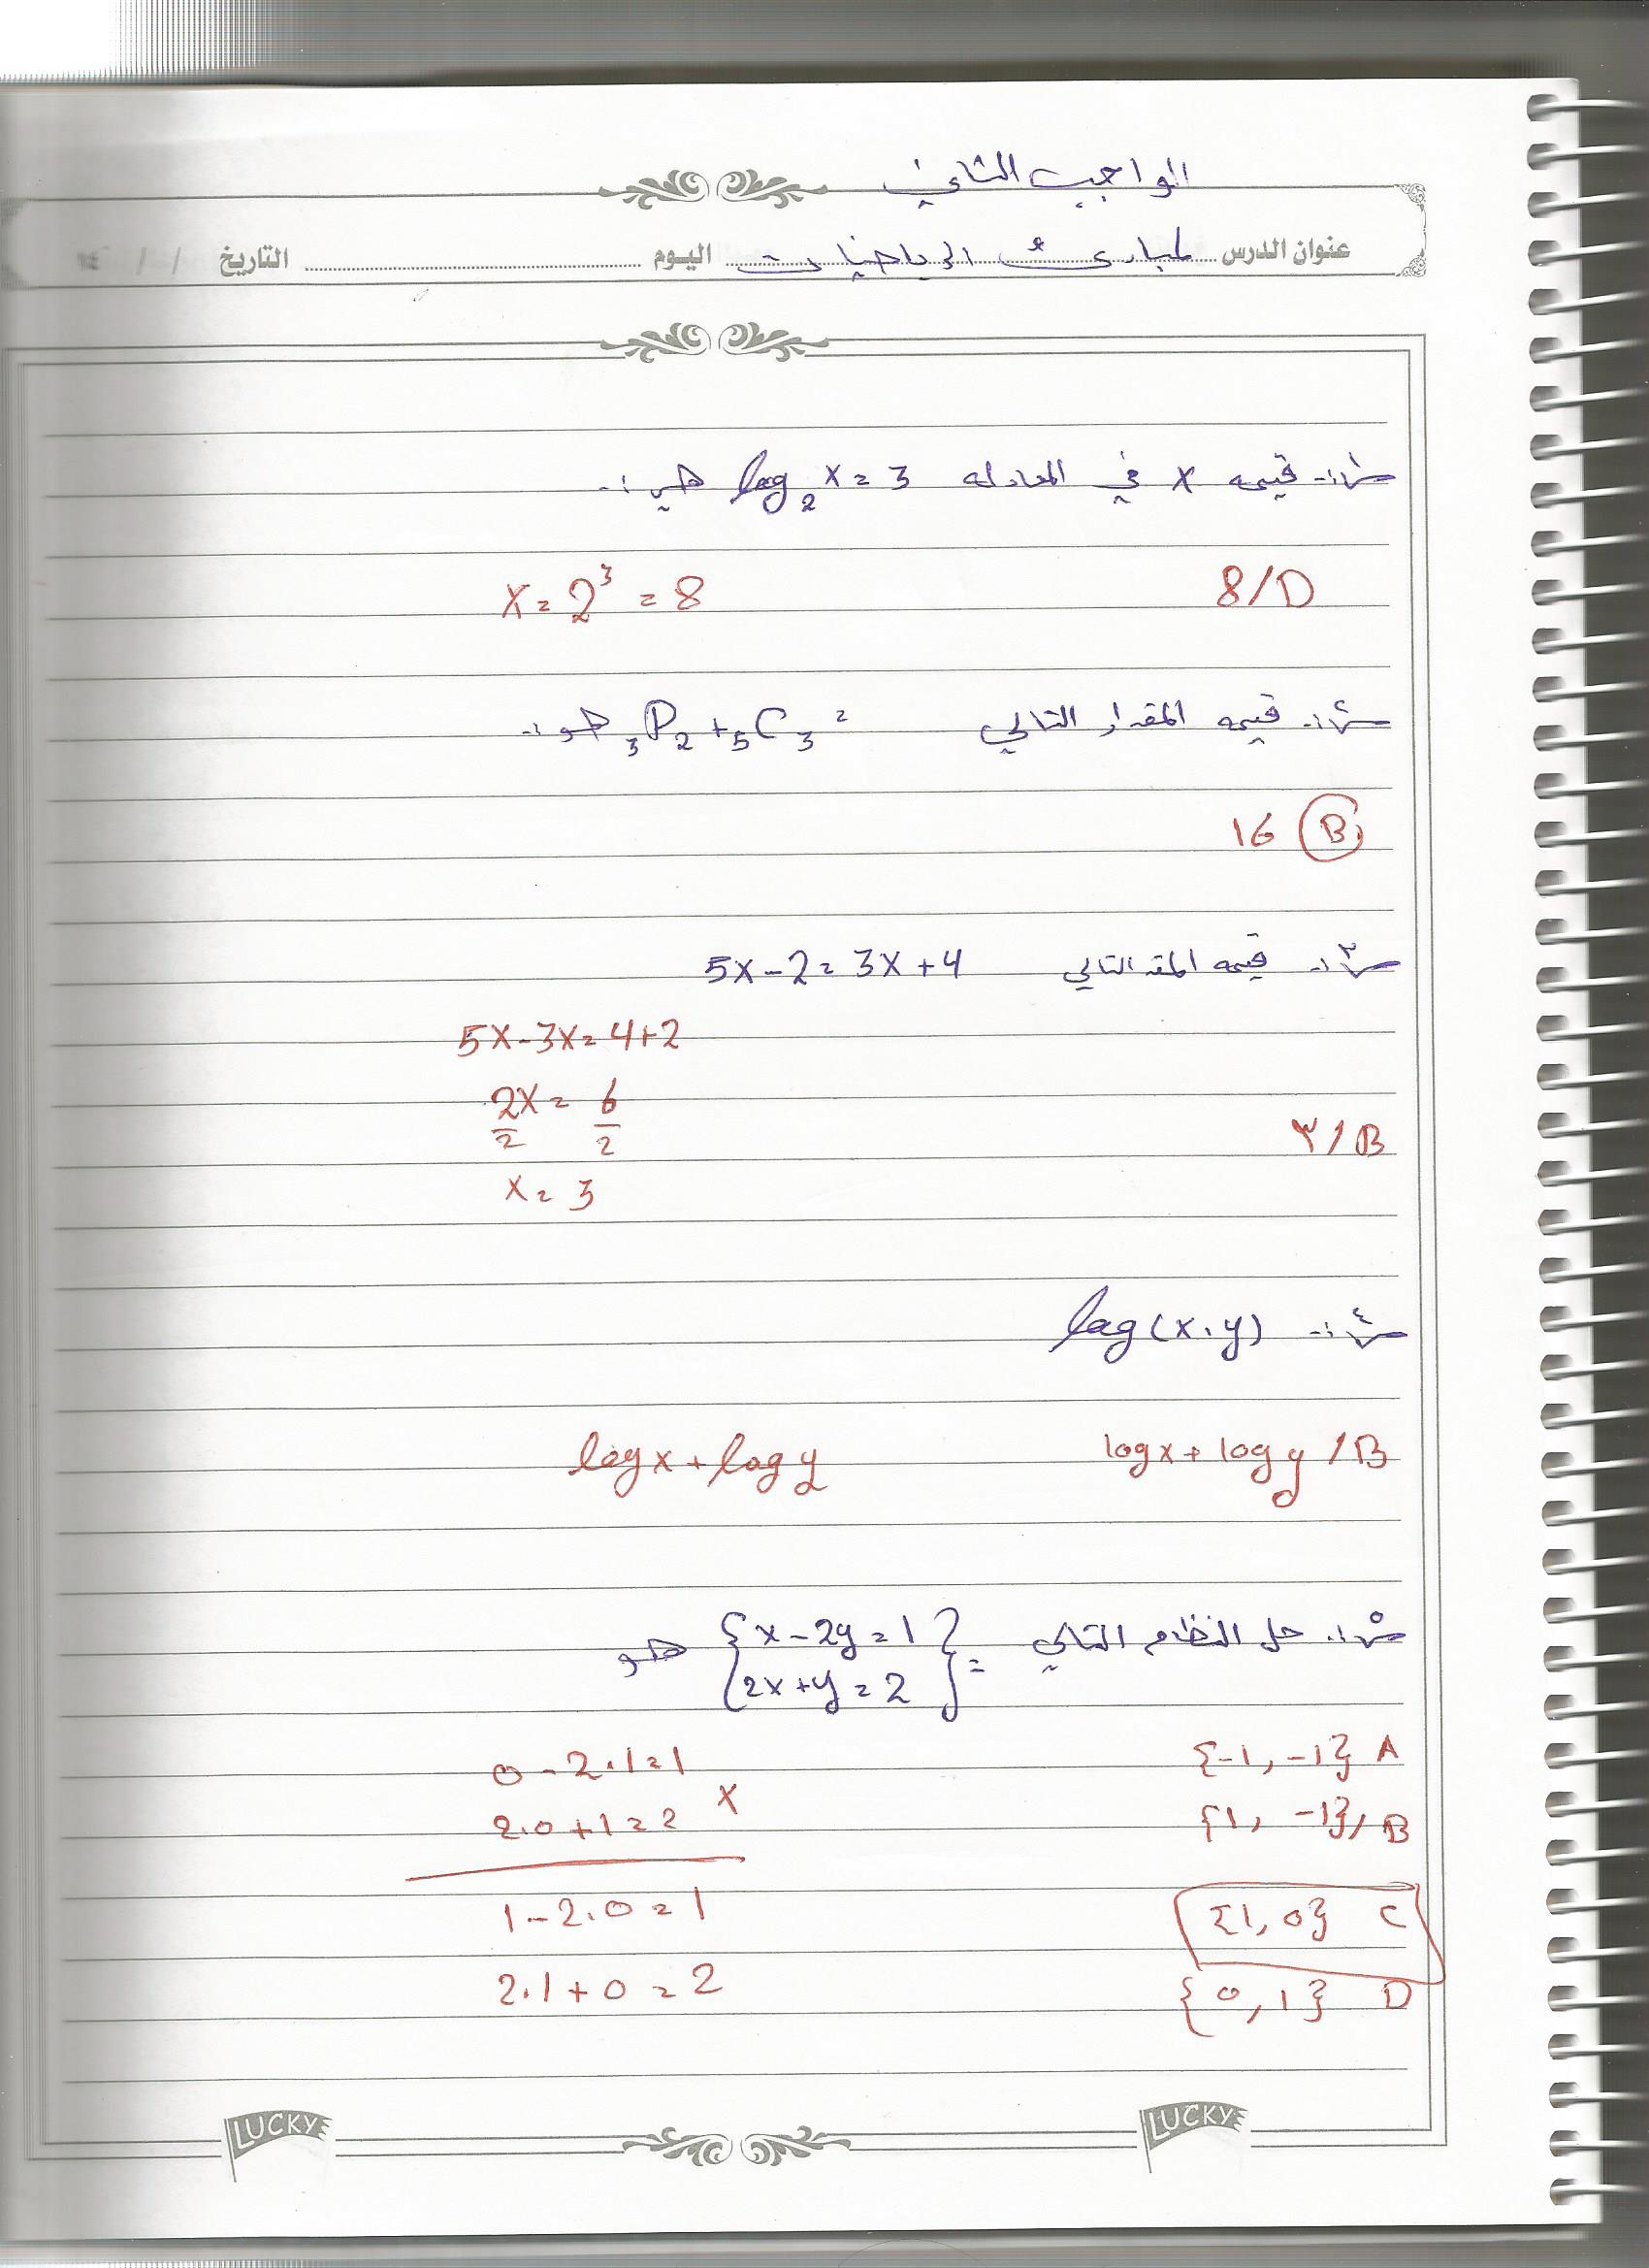 الواجب الثاني
عنوان الدرس لمبادئ الرياضيات اليوم التاريخ / / ١٤
س١:- قيمه x في المعادله log₂ x = 3 هي :-
8/D x = 2³ = 8
س٢:- قيمه المقدار التالي ₃P₂ + ₅C₃ = هو :-
16 B
س٣:- قيمه المقد التالي 5x - 2 = 3x + 4
5x - 3x = 4 + 2
2x/2 = 6/2
٣ / B
x = 3
س٤:- log (x . y)
log x + log y / B log x + log y
س٥:- حل النظام التالي = {x - 2y = 1 هو
2x + y = 2}
{-1, -1} A 0 - 2.1 = 1
{1, -1}/ B 2.0 + 1 = 2 X
{1, 0} C 1 - 2.0 = 1
{0, 1} D 2.1 + 0 = 2
LUCKY LUCKY